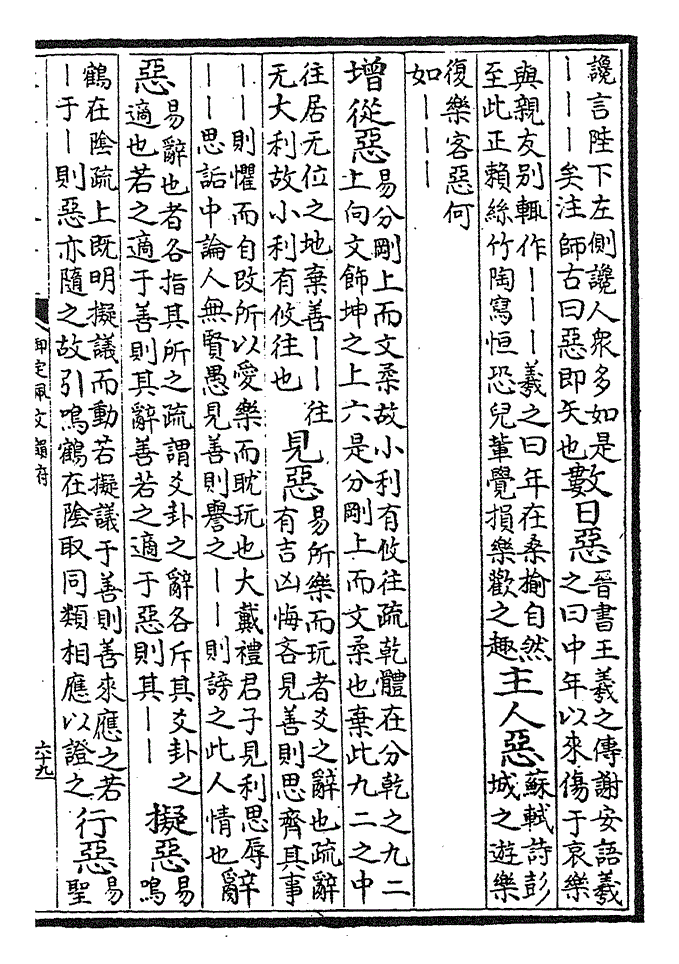 讒言陛下左側讒人衆多如是
丨丨丨矣注師古曰惡即矢也
數日惡
晉書王羲之傳謝安語羲
之曰中年以來傷于哀樂
與親友別輒作丨丨丨羲之曰年在桑榆自然
至此正賴絲竹陶寫恒恐兒輩覺損樂歡之趣
主人惡
蘇軾詩彭
城之遊樂
復樂客惡何
如丨丨丨
增從惡
易分剛上而文柔故小利有攸往疏乾體在分乾之九二
上向文飾坤之上六是分剛上而文柔也棄此九二之中
往居无位之地棄善丨丨往
无大利故小利有攸往也
見惡
易所樂而玩者爻之辭也疏辭
有吉凶悔吝見善則思齊其事
丨丨則懼而自改所以愛樂而耽玩也大戴禮君子見利思辱
丨丨思詬中論人無賢愚見善則譽之丨丨則謗之此人情也
辭
惡
易辭也者各指其所之疏謂爻卦之辭各斥其爻卦之
適也若之適于善則其辭善若之適于惡則其丨丨
擬惡
易
鳴
鶴在陰疏上既明擬議而動若擬議于善則善來應之若
丨于丨則惡亦隨之故引鳴鶴在陰取同類相應以證之
行惡
易
聖
御定佩文韻府
六十九